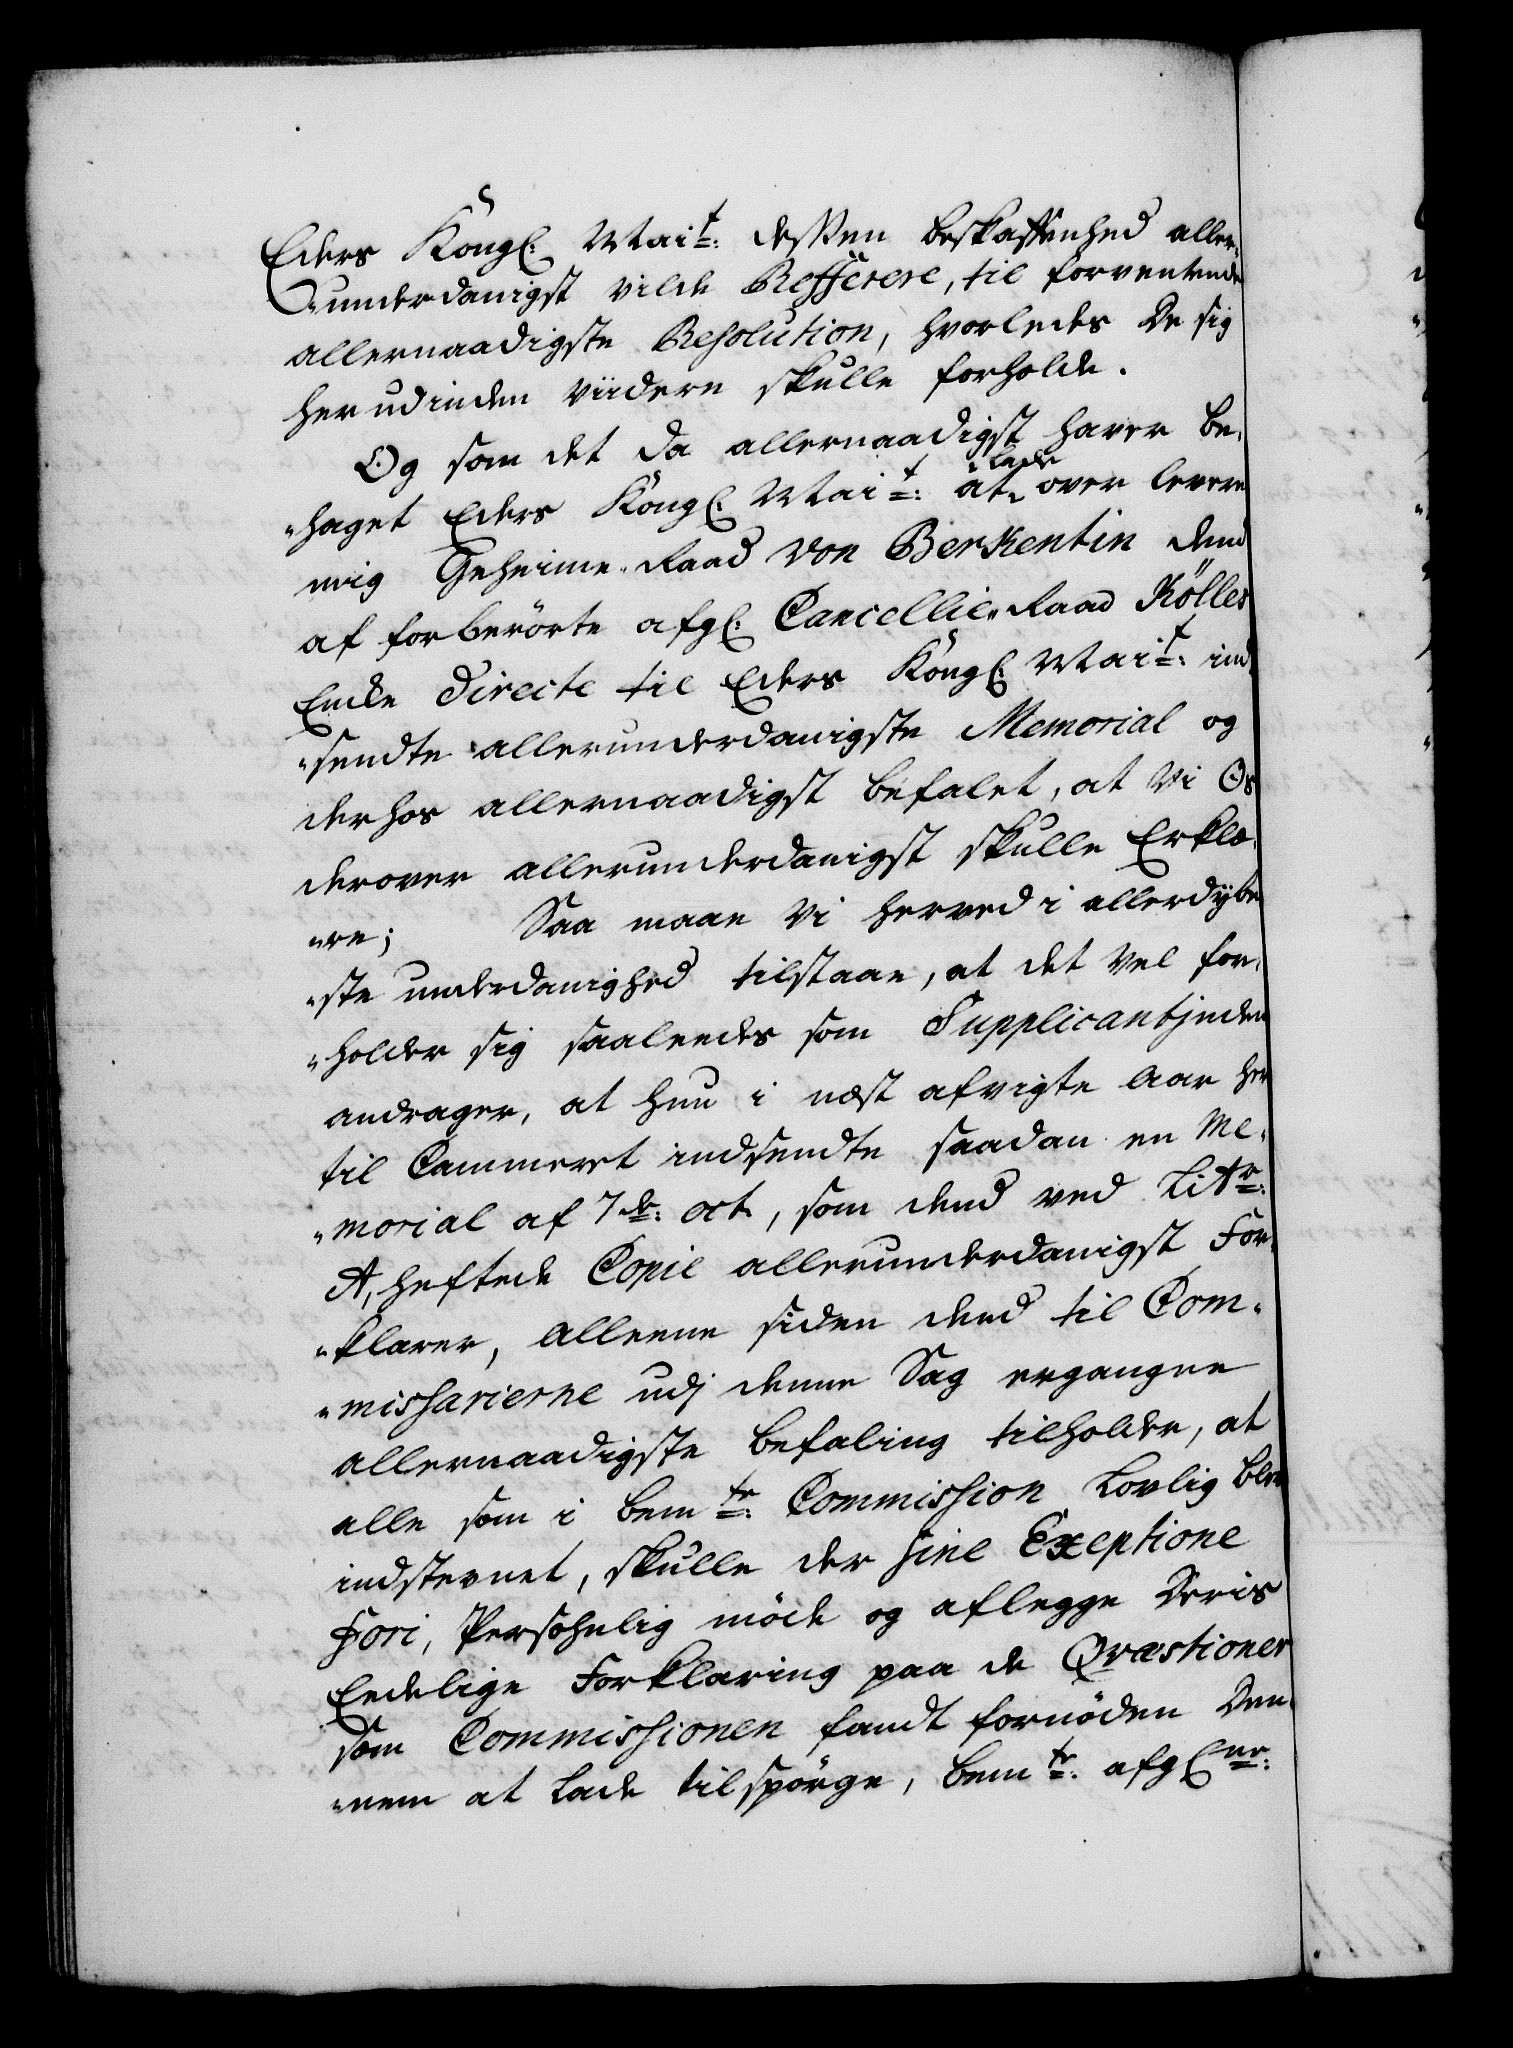 Eders Kongl: Mai<sup>t</sup>: dessen beskaffenhed aller-
„underdanigst vilde Refferere, til forventende
allernaadigste Resolution, hvorledes De sig
herudinden viidere skulle forholde.
Og som det da allernaadigst haver be-
„haget Eders Kongl: Mai<sup>t</sup>: at lade over levere
mig Geheime-Raad von Berkentin dend
af forberörte afgl: Cancellie-Raad Kölles
Encke directe til Eders Kongl: Mai<sup>t</sup>: ind-
„sendte allerunderdanigste Memorial og
derhos allernaadigst befalet, at Vi Os
derover allerunderdanigst skulle Erklæ-
„re; Saa maae Vi herved i allerdybe-
„ste underdanighed tilstaae, at det vel for-
„holder sig saaleedes som Supplicantinden
andrager, at hun i nest afvigte Aar her
til Cammeret indsendte saadan en Me-
„morial af 7<sup>de</sup>: Oct., som dend ved Lit<sup>r</sup>:
A, heftede Copie allerunderdanigst For-
„klarer, alleene siden dend til Com-
„missarierne udj denne Sag ergangne
allernaadigste befaling tilholder, at
alle som i bem<sup>te</sup>: Commission Lovlig blev
indstevnet, skulle der sine Exeptione
Fori, Persohnlig möde og aflegge Deris
Eedelige Forklaring paa de Qvæstioner
som Commissionen fandt fornöden Den-
„nem at Lade tilspörge, bem<sup>te</sup>: afgl<sup>ne</sup>: